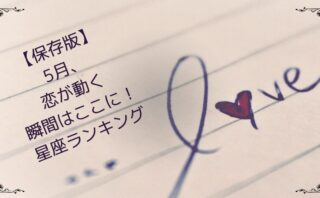 【保存版】
5月、
恋が動く
瞬間はここに！
星座ランキング
love